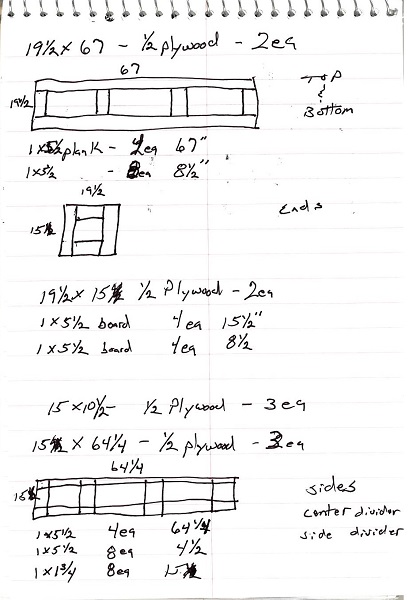 19½ x 67 - ½ plywood - 2ea
67
19½
TOP
&
Bottom
1x5½ plank - 4ea 67"
1x5½ - 8ea 8½"
19½
15½
Ends
19½ x 15 ½ Plywood - 2ea
1 x 5½ board 4ea 15½"
1 x 5½ board 4ea 8½
15 x 10½ - ½ Plywood - 3ea
15 x 64¼ - ½ plywood - 3ea
64¼
15
sides
center divider
side divider
1x5½ 4ea 64¼
1x5½ 8ea 4½
1x1¾ 8ea 15